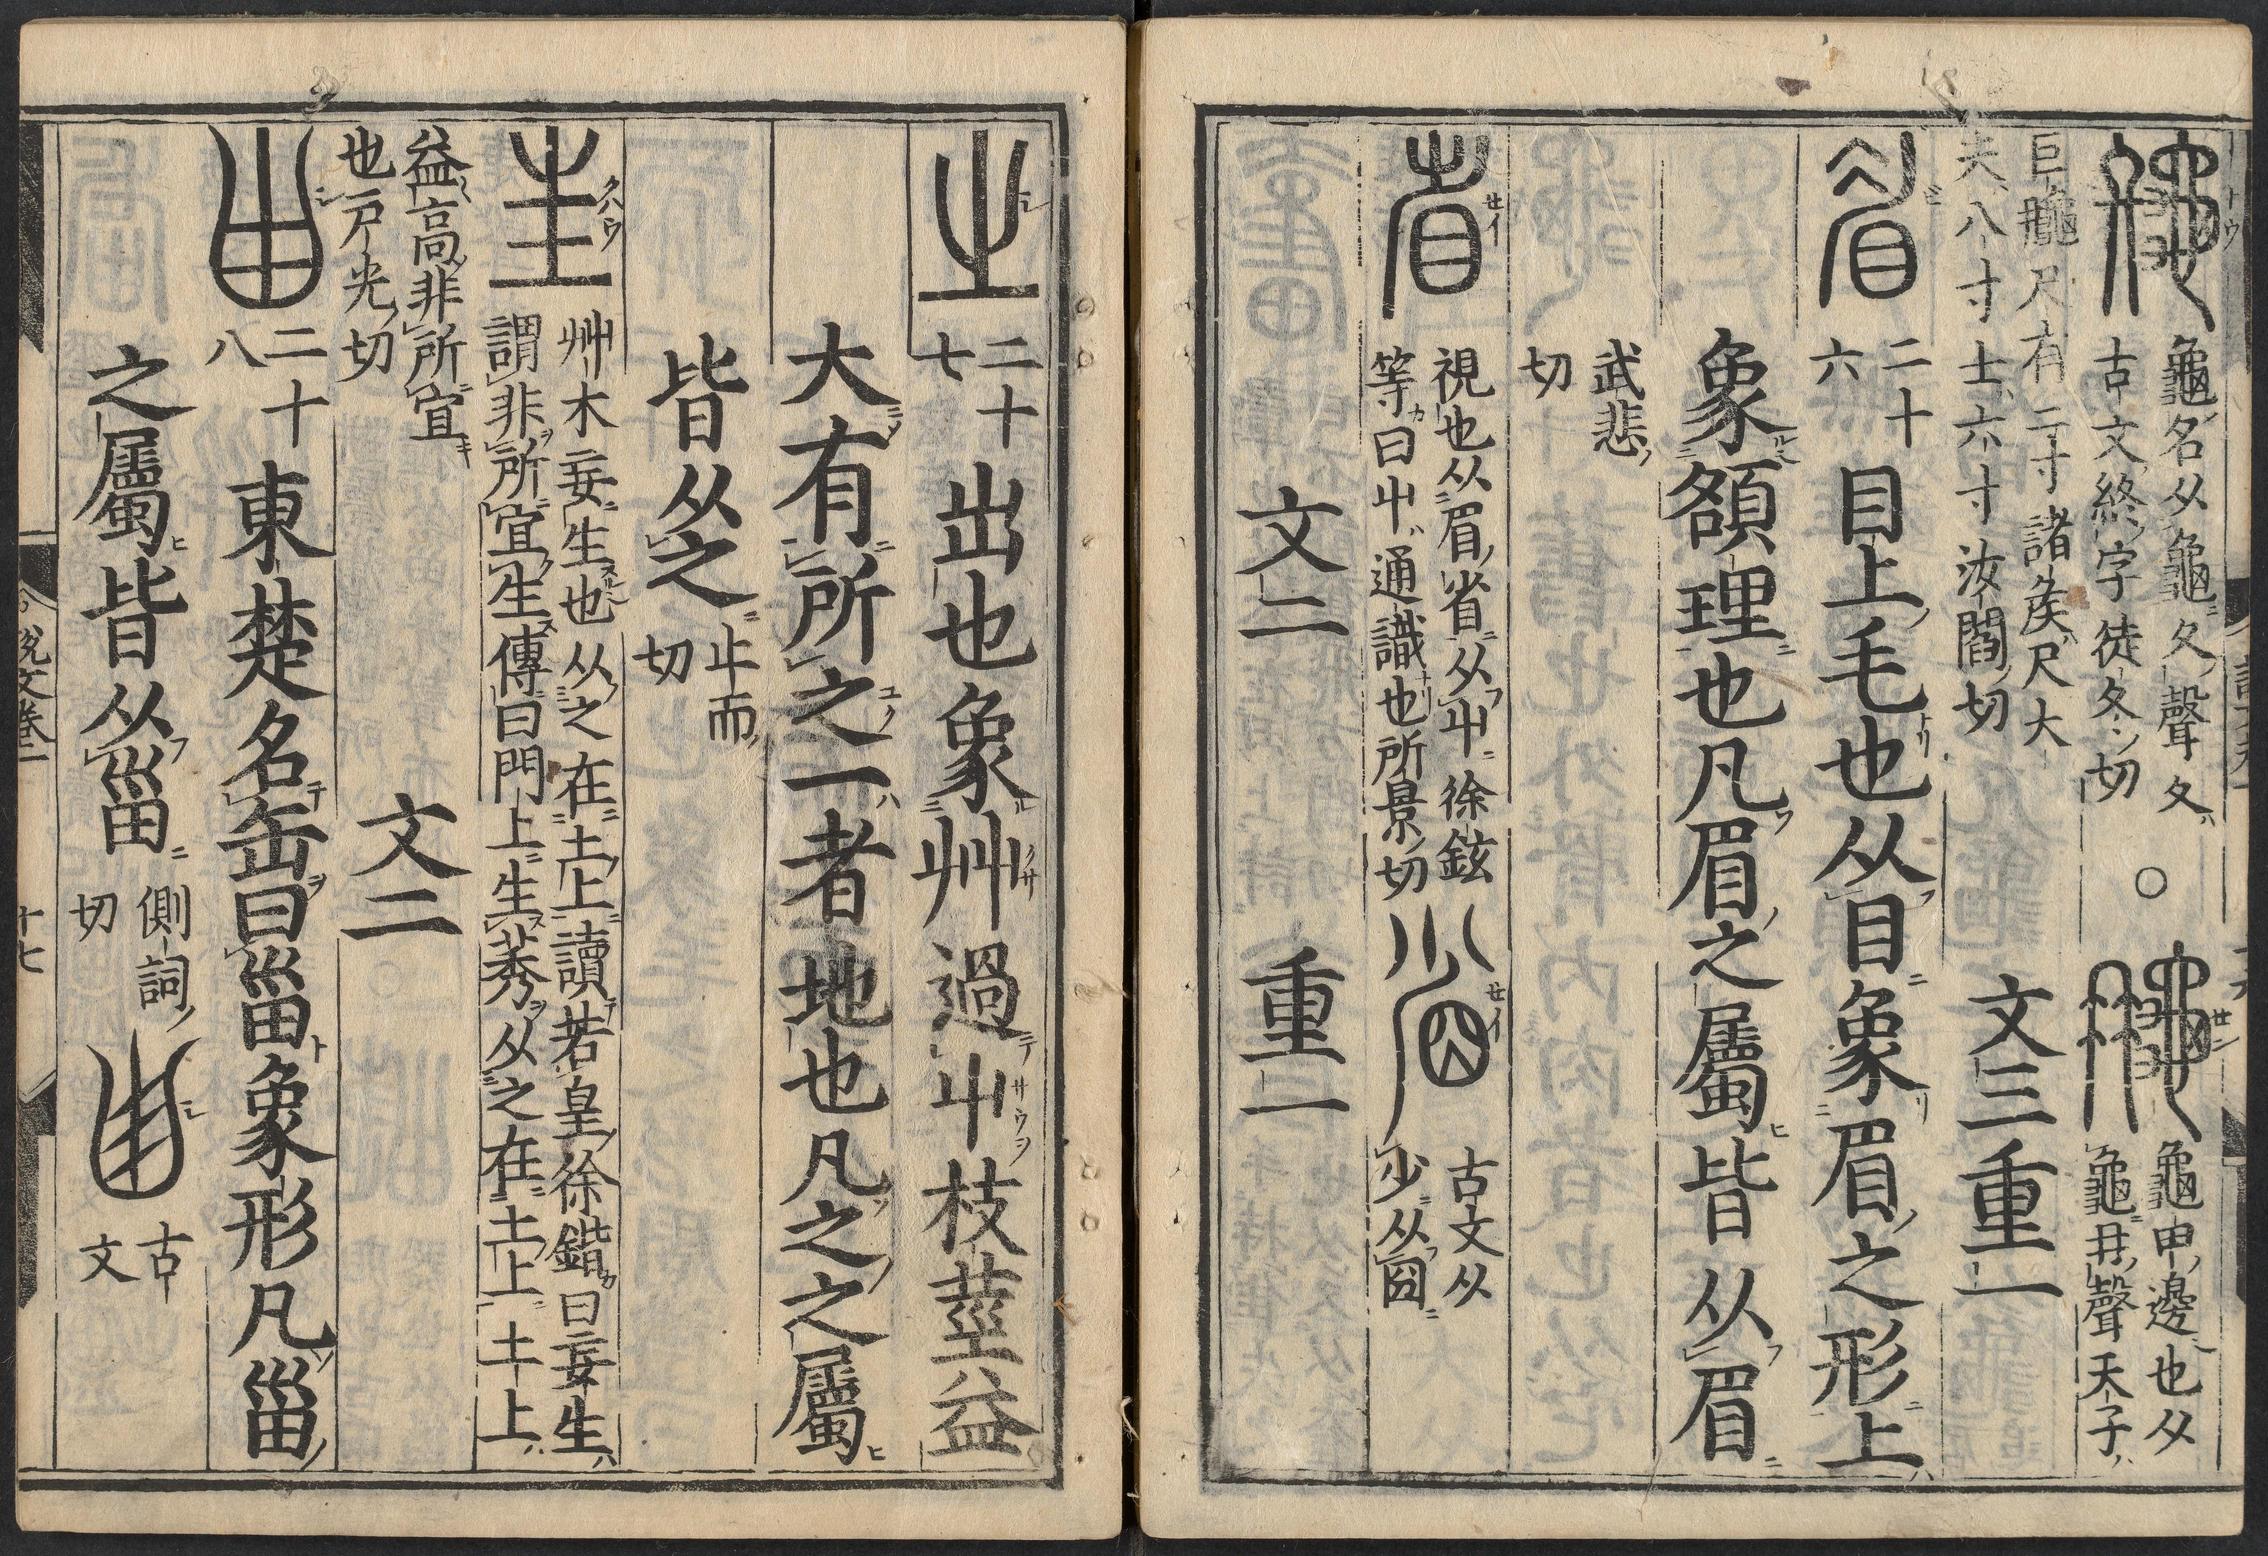 龜名从龜夂聲夂
古文終字徒冬切
○
龜甲邊也从
龜冄聲天子
巨䶲尺有二寸諸矦尺大
夫八寸士六寸汝閻切
文三重一
二十
六
目上毛也从目象眉之形上
象頟理也凡眉之屬皆从眉
武悲
切
視也从眉省从屮徐鉉
等曰屮通識也所景切
古文从
少从囧
文二 重一
二十
七
出也象艸過屮枝莖益
大有所之一者地也凡之之屬
皆从之
止而
切
艸木妄生也从之在土上讀若皇徐鍇曰妄生
謂非所宜生傳曰門上生莠从之在土上土上
益高非所宜
也戸光切
文二
二十
八
東楚名缶曰甾象形凡甾
之屬皆从甾
側詞
切
古
文
說文卷二
十七